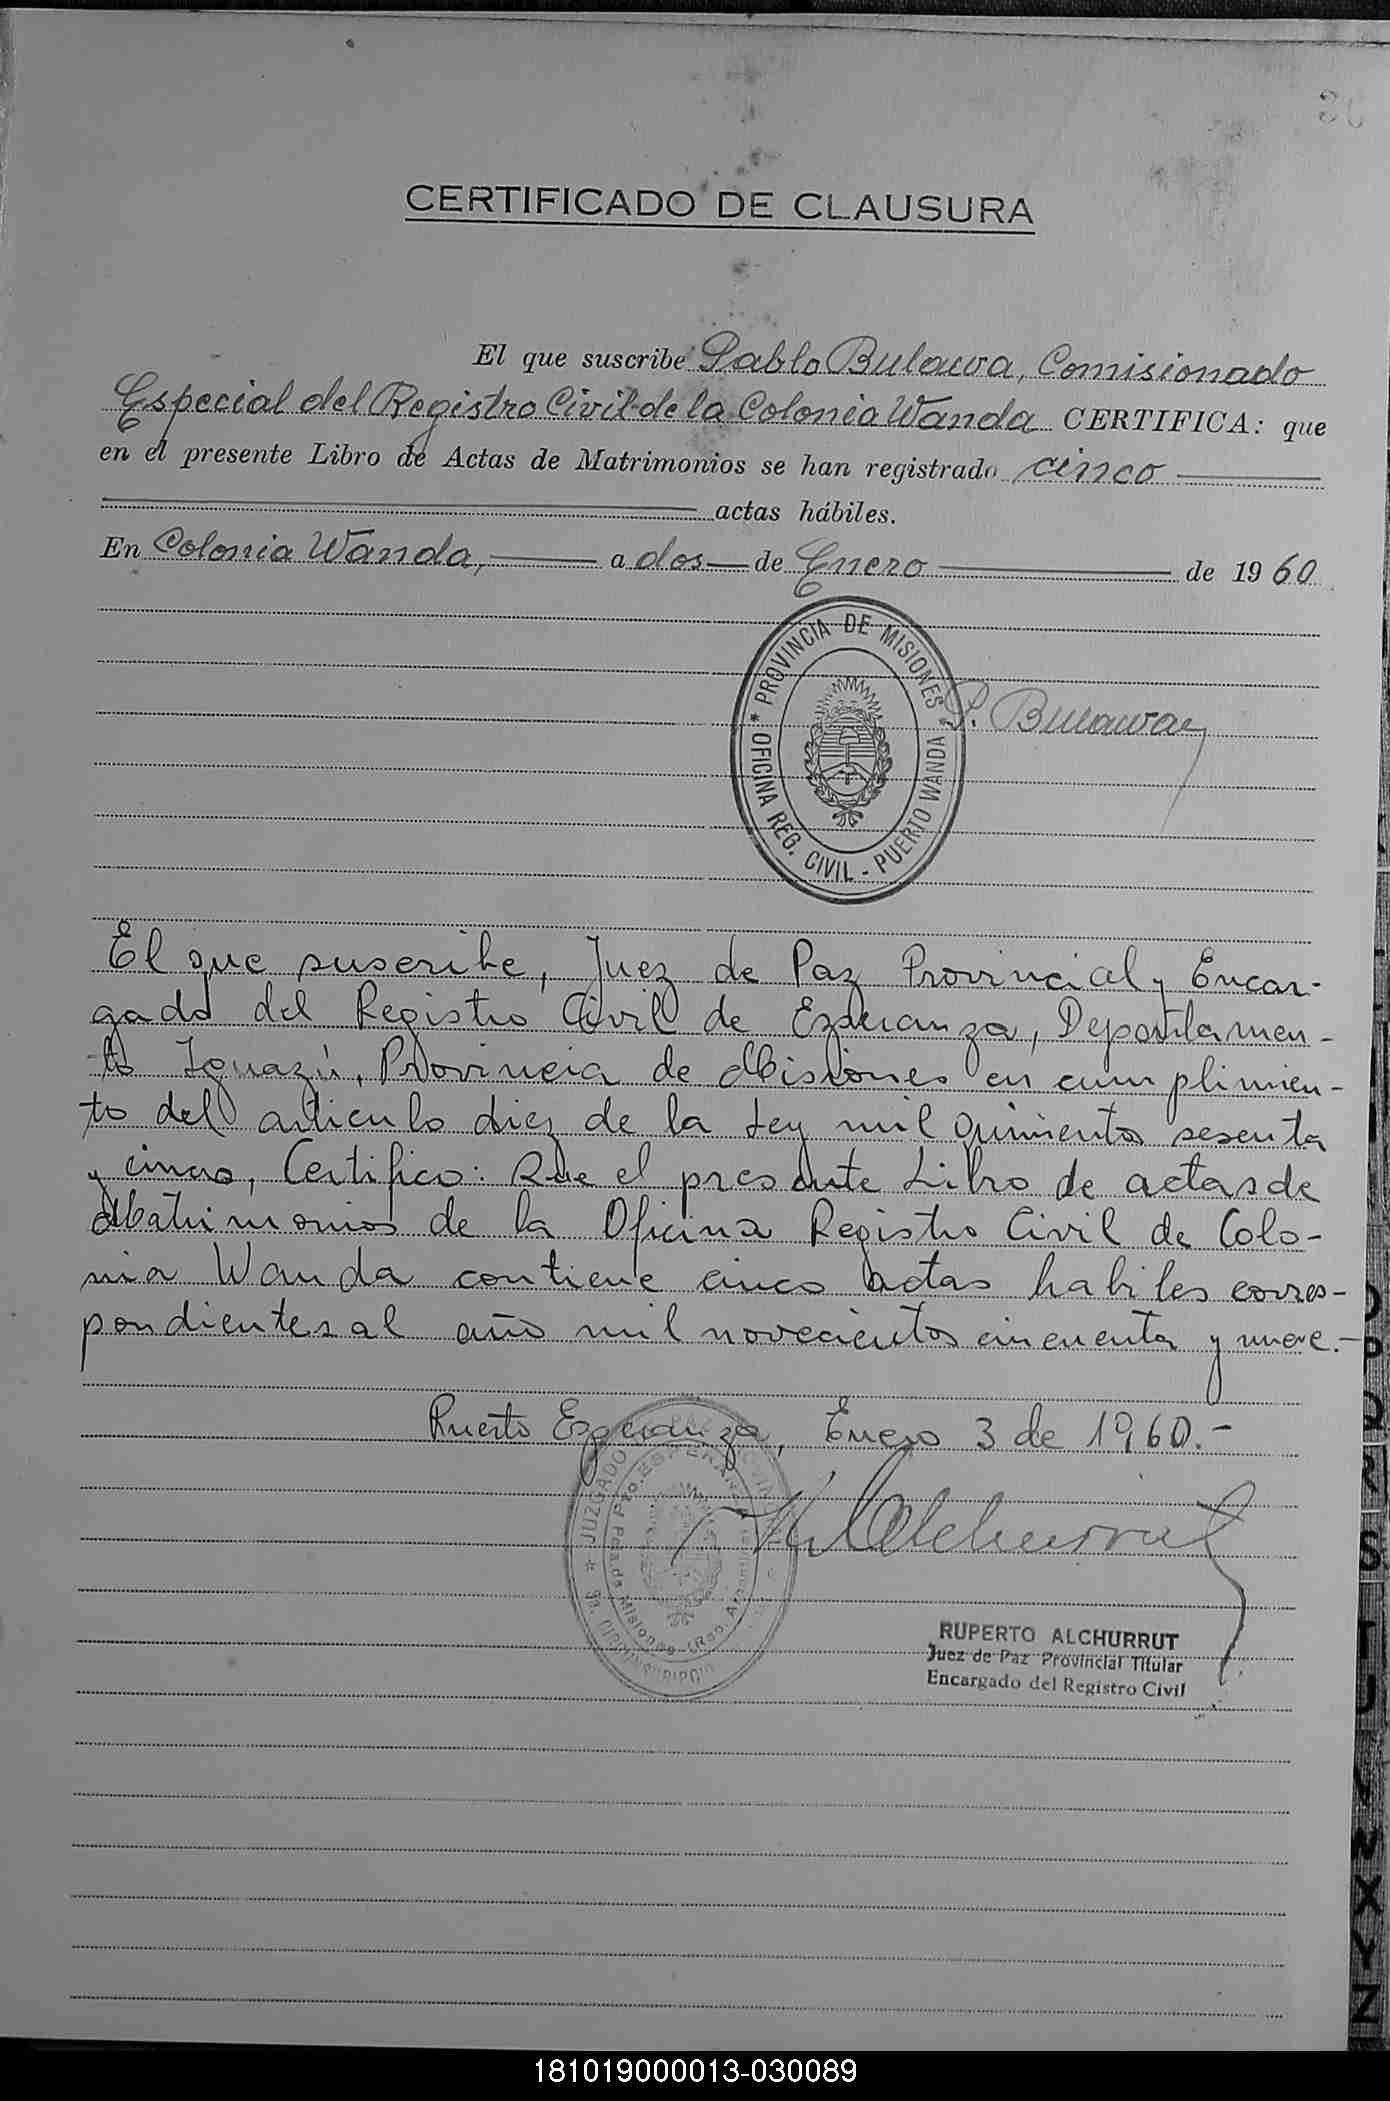 CERTIFICADO DE CLAUSURA
El que suscribe Pablo Bulawa, Comisionado
Especial del Registro Civil de la Colonia Wanda CERTIFICA: que
en el presente Libro de Actas de Matrimonios se han registrado cinco
actas hábiles.
En Colonia Wanda, a dos de Enero de 1960
* PROVINCIA DE MISIONES *
OFICINA REG. CIVIL - PUERTO WANDA
P. Bulawa
El que suscribe, Juez de Paz Provincial y Encar-
gado del Registro Civil de Esperanza, Departamen-
to Iguazú, Provincia de Misiones en cumplimien-
to del articulo diez de la Ley mil quinientos sesenta
y cinco, Certifico: Que el presente Libro de actas de
Matrimonios de la Oficina Registro Civil de Colo-
nia Wanda contiene cinco actas habiles corres-
pondientes al año mil novecientos cincuenta y nueve.-
Puerto Esperanza, Enero 3 de 1960.-
JUZGADO
Pto. ESPERANZA
Pcia de Misiones (Rep. Argentina)
CIRCUNSCRIPCION
Alchurrut
RUPERTO ALCHURRUT
Juez de Paz Provincial Titular
Encargado del Registro Civil
O
P
Q
R
S
T
U
V
W
X
Y
Z
181019000013-030089